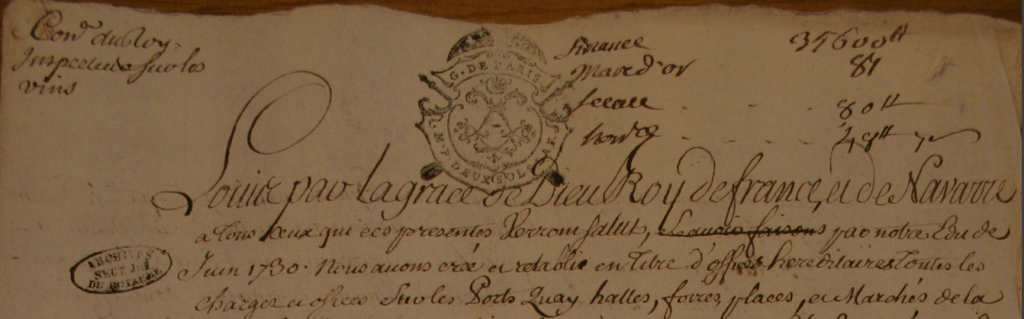 Con.er du Roy.
Inspecteur sur les
vins
G. DE PARIS
DEUX SOLS
finance 35600tt
Marc d'or 81
sceau 80tt
48tt
Louis par la grace de Dieu Roy de france, et de Navarre
a tous ceux qui ces presentes Verront salut, scavoir faisons par notre Edit de
Juin 1730. Nous avons créé et retablie en titre d'offices hereditaires toutes les
charges et offices sur les Ports Quay halles, foires, places, et Marchés de la
ARCHIVES
SECT. JRE
DU ROYAUME